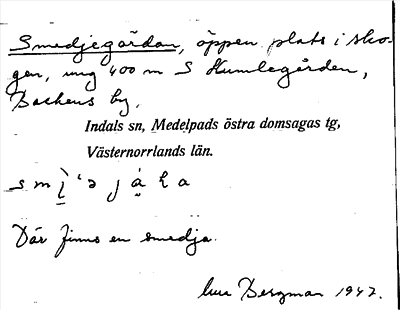 Smedjegårdan, öppen plats i sko-
gen, ung 400 m S Humlegården,
Backens by.
Indals sn, Medelpads östra domsagas tg,
Västernorrlands län.
Där finns en smedja.
Bergman 1947.